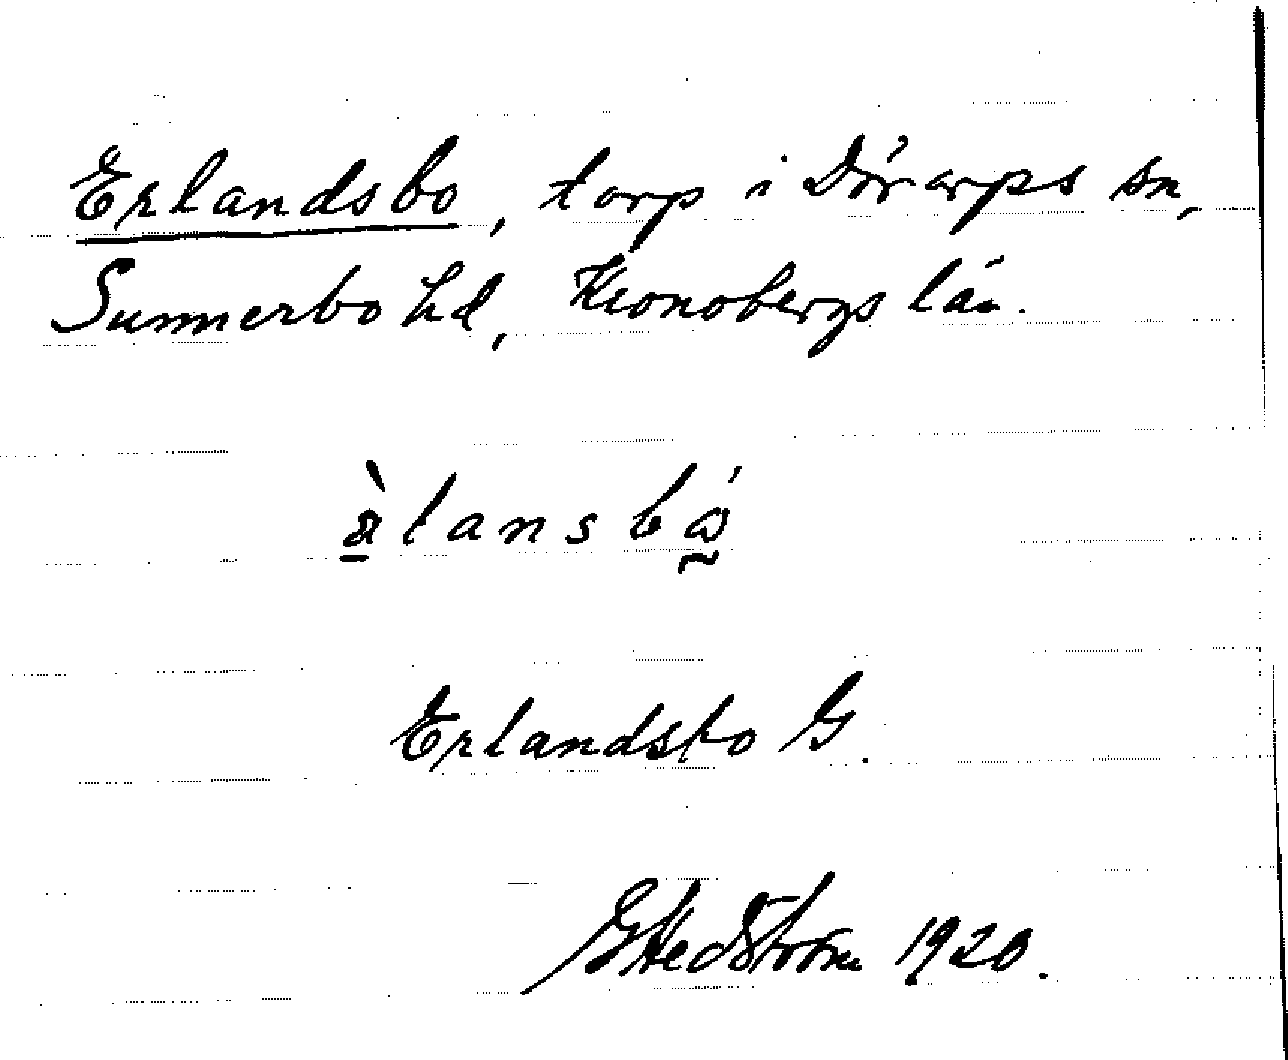 Erlandsbo, torp i Dörarps sn,
Sunnerbo hd, Kronobergs län.
Erlandsbo G.
G Hedström 1920.